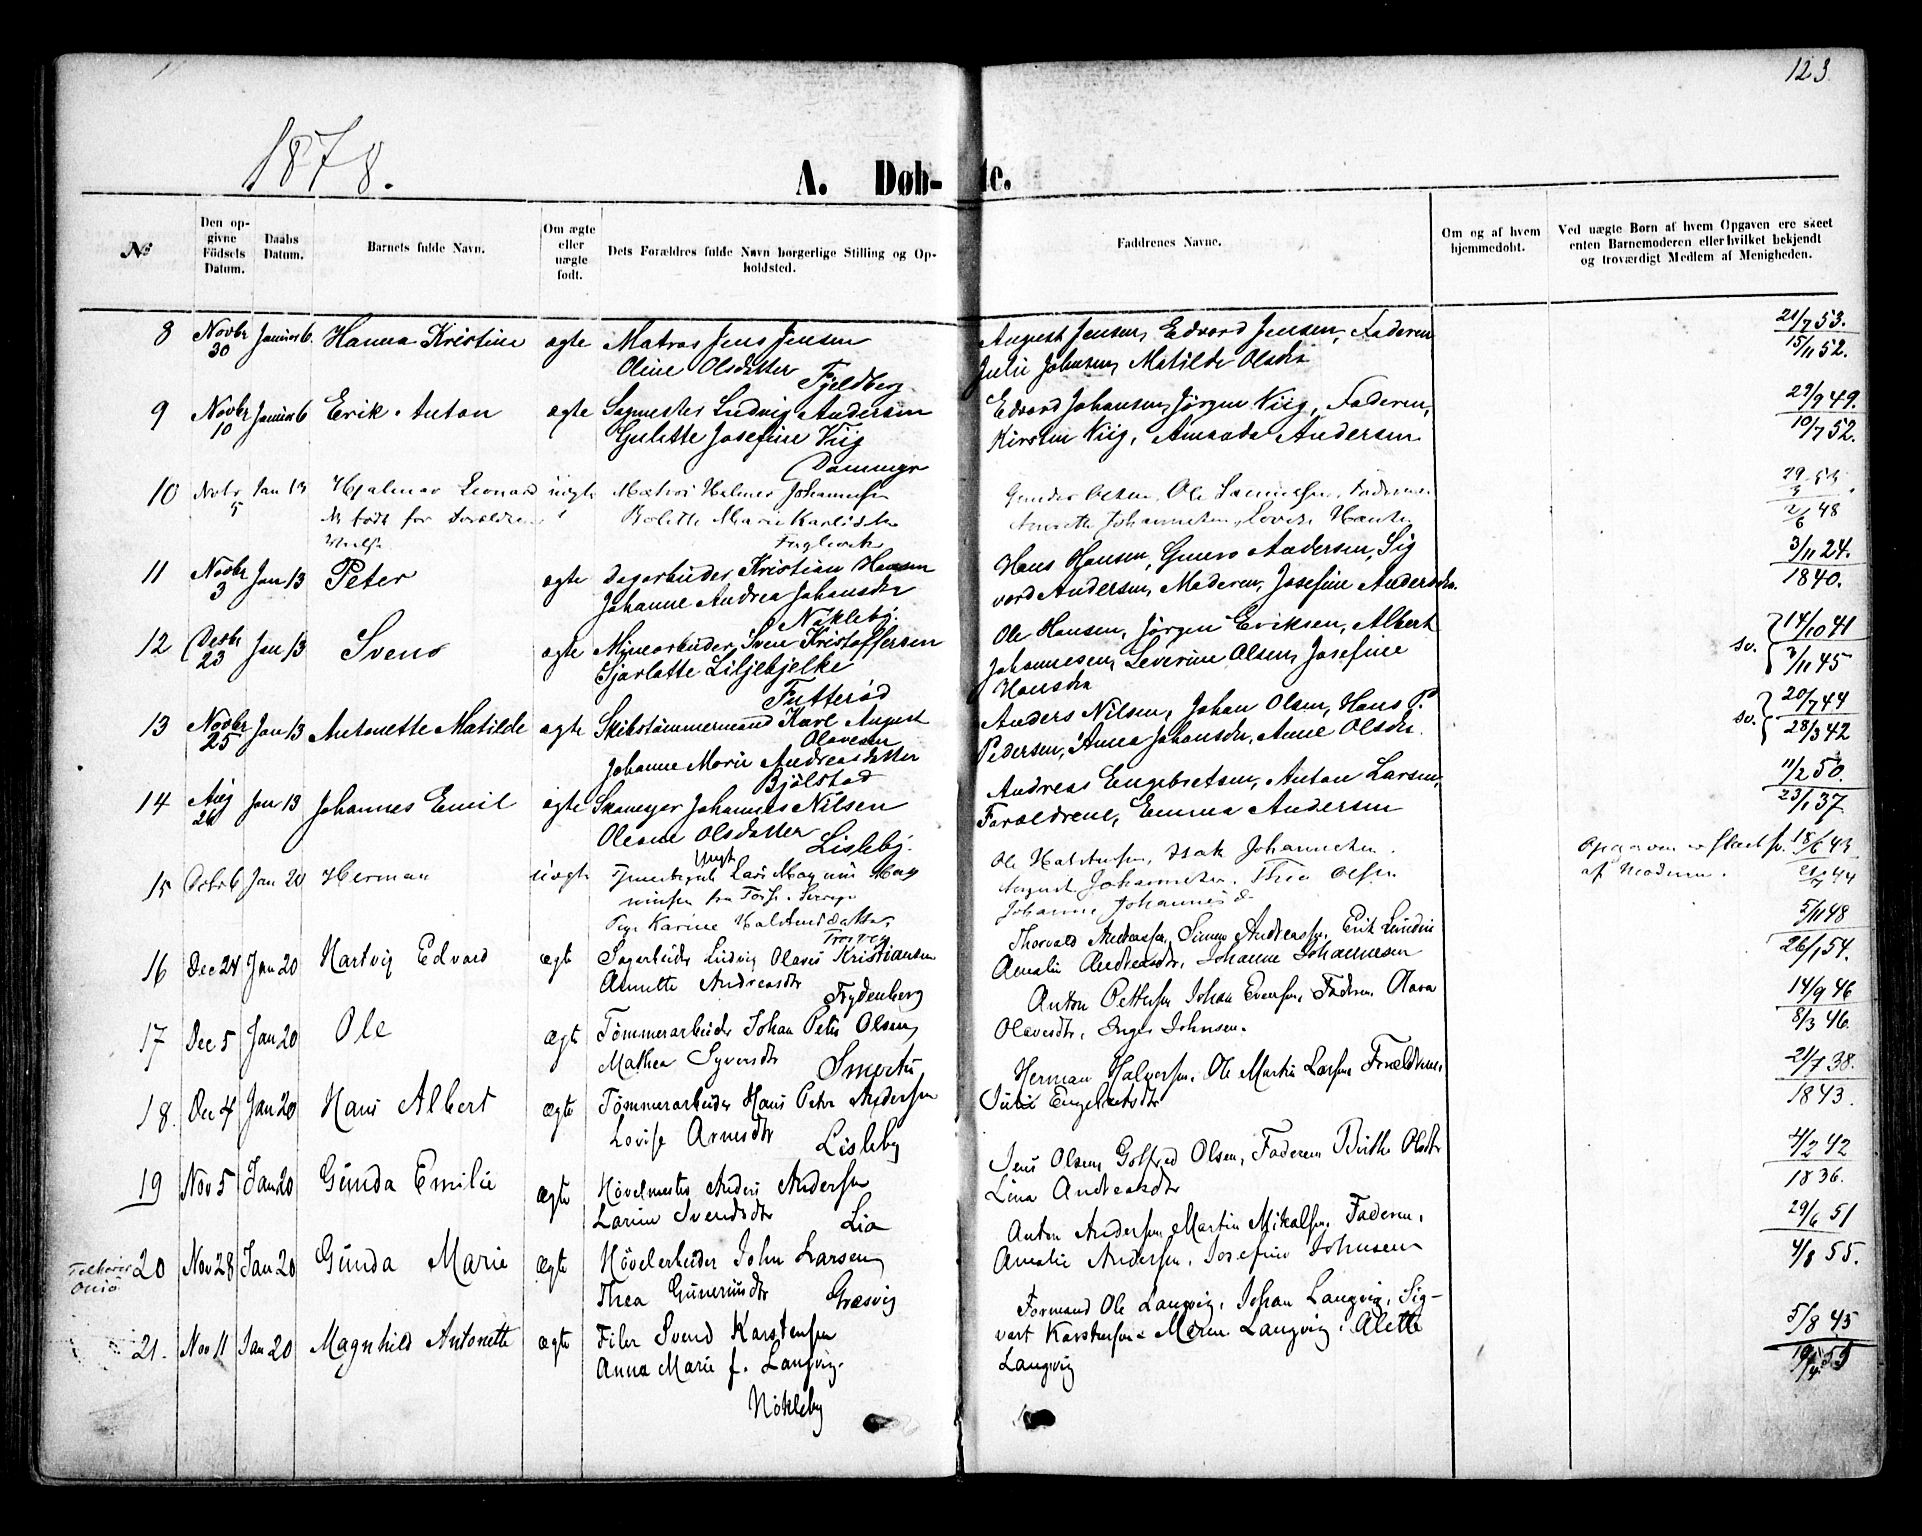 123
1878.
A. Døb- te.
№
Den op-
givne
Födsels
Datum.
Daabs
Datum.
Barnets fulde Navn.
Om ægte
eller
uægte
født.
Dets Forældres fulde Navn borgerlige Stilling og Op-
holdsted.
Faddrenes Navne.
Om og af hvem
hjemmedøbt.
Ved uægte Børn af hvem Opgaven ere skeet
enten Barnemoderen eller hvilket bekjendt
og troværdigt Medlem af Menigheden.
8 Novbr 30 Januar 6. Hanna Kristine ægte Matros Jens Jensen
Oline Olsdatter Fjeldberg
August Jensen, Edvard Jensen, Faderen
Julie Johnsen, Matilde Olsdtr
21/7 53.
15/11 52.
9 Novbr 10 Januar 6 Erik Anton ægte Sagmester Ludvig Andersen
Gulette Josefine Viig
Dammyr
Edvard Johansen, Jørgen Viig, Faderen,
Kirsten Viig, Amanda Andersen
29/9 49.
10/7 52.
10 Novbr 5 Jan 13 Hjalmar Leonard uægte Matros Halmer Johannesen
født for Forældrene
Bolette Marie Karlsdtr
Fuglevik
Ole Samuelsen, Faderen
Johannesen, Lovise
2/6 48
11 Novbr 3 Jan 13 Peter ægte Dagarbeider Kristian Hansen
Johanne Andrea Johansdtr
Nøkleby.
Hans Hansen, Gunero Andersen, Sig
vard Andersen, Moderen, Josefine Andersdtr.
3/11 24.
1840.
12 Desbr 23 Jan 13 Sveno ægte Myrearbeider Sven Kristoffersen
Sjarlotte Liljehjelke
Futterød
Ole Hansen, Jørgen Eriksen, Albert
Johannesen, Severine Olsen, Josefine
Hansdtr
sv. 14/10 41
7/11 45
13 Novbr 25 Jan 13 Antonette Matilde ægte Skibstømmermand Karl August
Olavesen
Johanne Marie Andreasdatter
Bjølstad
Anders Nilsen, Johan Olsen, Hans P.
Pedersen, Anna Johansdtr, Anne Olsdtr.
sv. 20/7 44
28/3 42
14 Aug 26 Jan 13 Johannes Emil ægte Skomager Johannes Nilsen
Oleane Olsdatter Lisleby.
Andreas Engebretsen, Anton Larsen,
Forældrene, Emma Andersen
11/2 50.
23/1 37.
15 Jan 20 Herman uægte Ungk Lars Magnus Mag
nusen fra
Pige Karine Halstensdatter
Trosvig
Ole Halstensen, Isak Johannesen.
August Johannesen. Thea Olsen
Johanne Johannesd
Opgaven er skeet
af Moderen.
16 Dec 24 Jan 20 Hartvig Edvard ægte Sagarbeider Ludvig Olaves Kristiansen
Annette Andreasdtr
Frydenberg
Thorvald Andreassen, Simen Andreassen, Erik Lundin
Amalie Andreasdtr, Johanne Johannesen
5/11 48
26/1 54.
17 Dec 5 Jan 20 Ole ægte Tømmerarbeider Johan Peter Olsen
Mathea Syversdtr Smertu
Anton Pettersen Johan Evensen, Faderen Olava
Olavesdtr, Inger Johnsen.
14/9 46
8/3 46.
18. Dec 4 Jan 20 Hans Albert ægte Tømmerarbeider Hans Peter Andersen
Lovise Arnesdtr Lisleby
Herman Halvorsen, Ole Martin Larsen Forældrene,
Julie Engebretsdtr
21/7 38.
1843.
19 Nov 5 Jan 20 Gunda Emilie ægte Høvelmester Anders Andersen
Larine Svendsdtr Lia
Jens Olsen, Gotfred Olsen, Faderen Birthe Olsdtr
Lina Andreasdtr
4/2 42
1836.
20 Nov 28 Jan 20 Gunda Marie ægte Høvelarbeider John Larsen
Thea Gunerusdtr Græsvig
Anton Andersen Martin Mikalsen, Faderen,
Amalie Andersen, Josefine Johnsen
29/6 51
4/8 55.
21. Nov 11 Jan 20 Magnhild Antonette ægte Filer Svend Karstensen
Anna Marie f. Langvig.
Nøkleby
Formand Ole Langvig, Johan Langvig, Sig-
vart Karstensen Maren Langvig, Alette
Langvig
5/8 45